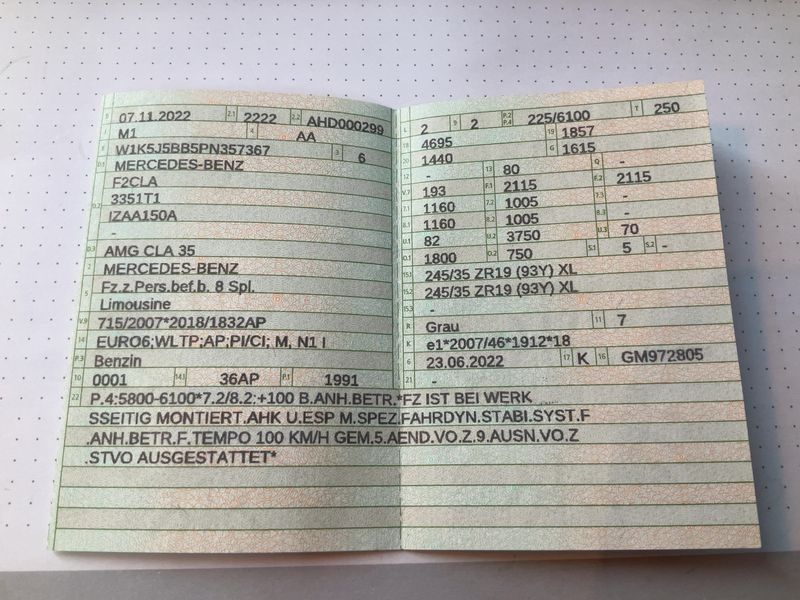 B 07.11.2022 2.1 2222 2.2 AHD000299
J M1 4 AA
E W1K5J5BB5PN357367 3 6
D.1 MERCEDES-BENZ
F2CLA
D.2 3351T1
IZAA150A
-
D.3 AMG CLA 35
2 MERCEDES-BENZ
5 Fz.z.Pers.bef.b. 8 Spl.
Limousine
V.9 715/2007*2018/1832AP
14 EURO6;WLTP;AP;PI/CI; M, N1 I
P.3 Benzin
10 0001 14.1 36AP P.1 1991
L 2 9 2 P.2 P.4 225/6100 T 250
18 4695 19 1857
20 1440 G 1615
12 - 13 80 Q -
V.7 193 F.1 2115 F.2 2115
7.1 1160 7.2 1005 7.3 -
8.1 1160 8.2 1005 8.3 -
U.1 82 U.2 3750 U.3 70
O.1 1800 O.2 750 S.1 5 S.2 -
15.1 245/35 ZR19 (93Y) XL
15.2 245/35 ZR19 (93Y) XL
15.3 -
R Grau 11 7
K e1*2007/46*1912*18
6 23.06.2022 17 K 16 GM972805
21 -
22 P.4:5800-6100*7.2/8.2:+100 B.ANH.BETR.*FZ IST BEI WERK
SSEITIG MONTIERT.AHK U.ESP M.SPEZ.FAHRDYN.STABI.SYST.F
.ANH.BETR.F.TEMPO 100 KM/H GEM.5.AEND.VO.Z.9.AUSN.VO.Z
.STVO AUSGESTATTET*